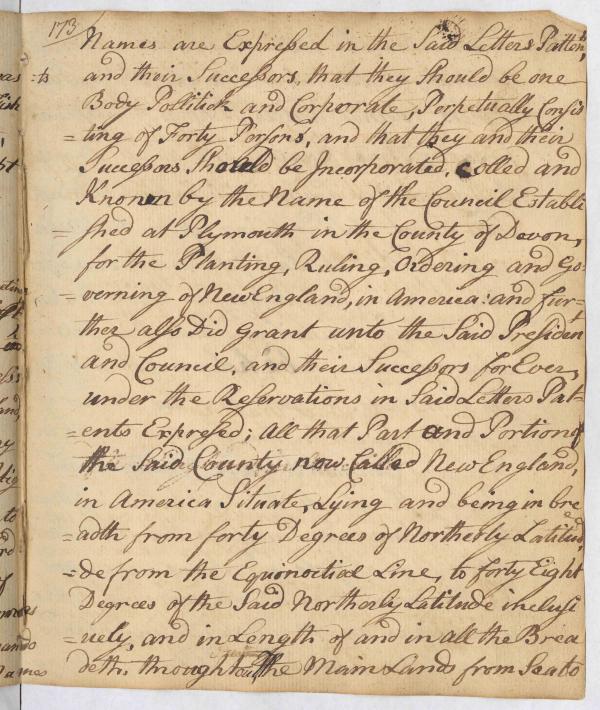 173
Names are Expressed in the Said Letters Patten,ts
and their Successors, that they Should be one
Body Pollitick and Corporate, Perpetually Consis
=ting of Forty Persons, and that they and their
Successors Should be Incorporated, Colled and
Known by the Name of the Council Establi
=shed at Plymouth in the County of Devon,
for the Planting, Ruling, Ordering and Go=
=verning of New England, in America: and fur=
ther also Did Grant unto the Said Presiden
and Council, and their Successors for Ever,
under the Reservations in Said Letters Pat=
=ents Expresed; All that Part and Portion of
the Said County now Called New England,
in America Situate, Lying and being in bre
=adth from forty Degrees of Northerly Latitud,
=de from the Equinoctial Line, to forty Eight
Degrees of the Said Northerly Latitude inclusi
=vely, and in Length of and in all the Brea
deth throughout the Main Lands from Sea to